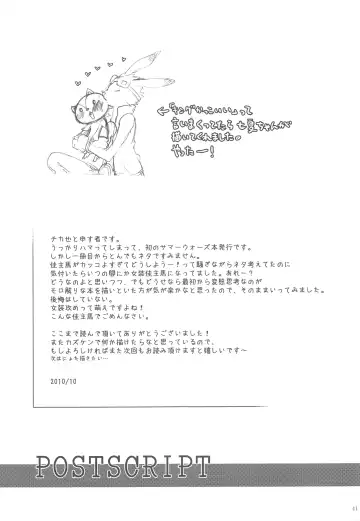 ←「キングかっこいい」って
言いまくってたら七夏ちゃんが
描いてくれました。
やたー!
チカ也と申す者です。
うっかりハマってしまって、初のサマーウォーズ本発行です。
しかし一冊目からとんでもネタですみません。
佳主馬がカッコよすぎてどうしよう~!って騒ぎながらネタ考えてたのに
気付いたらいつの間にか女装佳主馬になってました。あれー?
どうなのよと思いつつ、でもどうせなら最初から変態思考なのが
モロ解りな本を描いといた方が気が楽かなと思ったので、そのままいってみました。
後悔はしていない。
女装攻めって萌えですよね!
こんな佳主馬でごめんなさい。
ここまで読んで頂いてありがとうございました!
またカズケンで何か描けたらなと思っているので、
もしよろしければまた次回もお読み頂けますと嬉しいです~
次はにょた描きたい…
2010/10
POSTSCRIPT